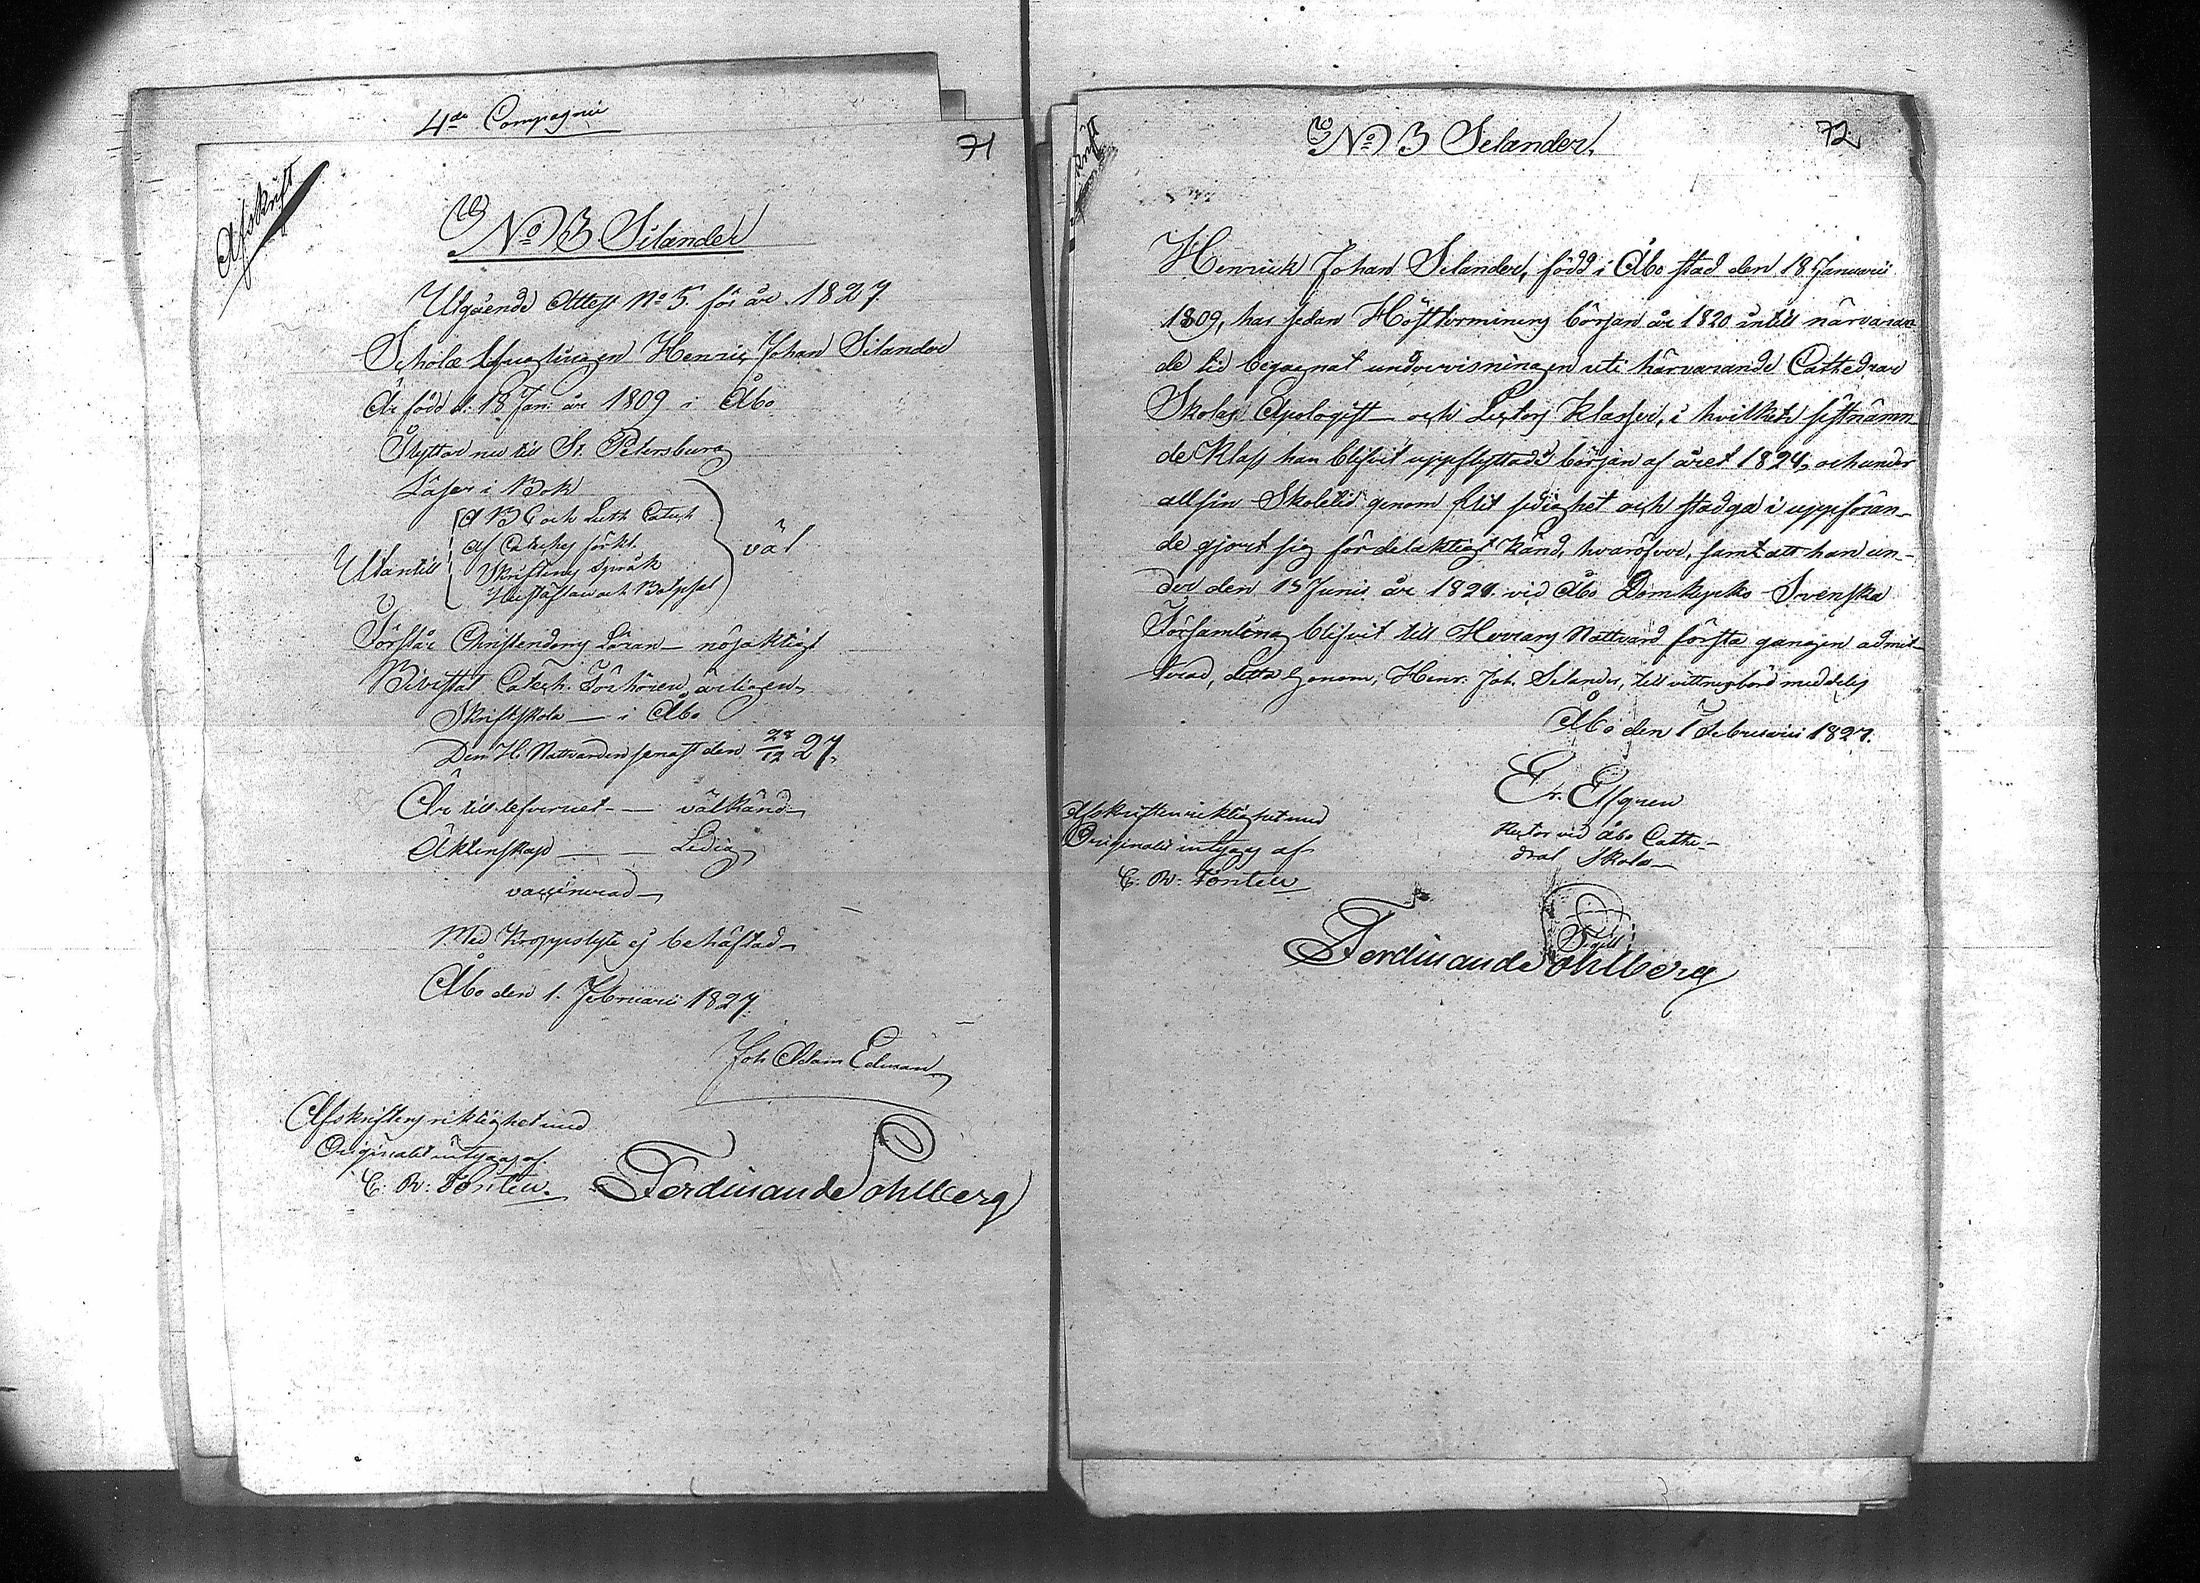 4de Compagnie
71
Afskrift
No 3 Silander
Utgående Attest No 5 för år 1827
Schola Ynglingen Henric Johan Silander
Är född d: 18 Jan: år 1809 i Åbo
Flyttar nu till St. Petersburg
Läser i Bok
A B C och Luth Catech
af Cateches förkl.
Utantill
väl
Skriftens Språk
Hustaflan och Botpsal
Förstår Christendoms Läran — nöjaktigt
Bivistat Catech. Förhören årligen
Skriftskola — i Åbo
Den H. Nattvarden senast den 28/12 27.
Är till lefvernet — välkänd
Äktenskap — — Ledig
vaccinerad
Med Kroppslyte ej behäftad
Åbo den 1. Februarii 1827.
Joh Adam Edman
Afskriftens riktighet med
Originalet intygas af
C: W: Fontell.
Ferdinand Sohlberg
72
No 3 Selander
Henrick Johan Selander, född i Åbo stad den 18 Januarii
1809, har sedan Höstterminens början år 1820 intill närvaran-
de tid begagnat undervisningen uti härvarande Cathedral
Skolas Apologist- och Rectors Klasser, i hvilken sistnämn-
de Klass han blifvit uppflyttad i början af året 1824, och under
all sin Skoletid genom flit sedighet och stadga i uppföran-
de gjort sig fördelaktigt känd, hvaröfver, samt att han un-
der den 15 Junii år 1824 vid Åbo Domkyrko-Svenska
Församling blifvit till Herrans Nattvard första gången admit-
terad, detta honom, Henr. Joh. Selander, till vittnesbörd meddelas
Åbo den 1 Februarii 1827.
Er. Elfgren
Rector vid Åbo Cathe-
dral Skola
Afskriftens riktighet med
Originalet intygas af
C: W: Fontell
Sigill
Ferdinand Sohlberg